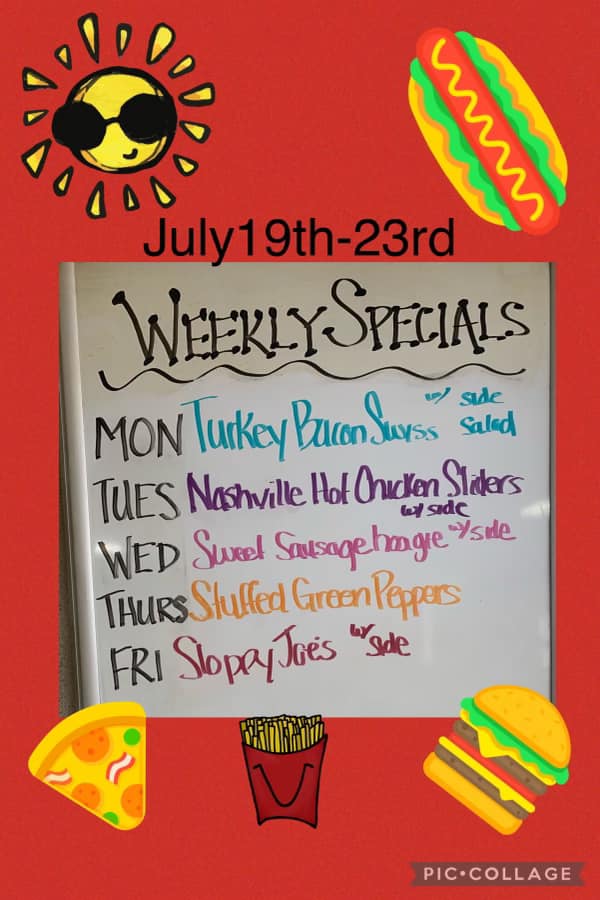 July19th-23rd
WEEKLY SPECIALS
MON Turkey Bacon Swiss w/ side Salad
TUES Nashville Hot Chicken Sliders w/ side
WED Sweet Sausage hoagie w/ side
THURS Stuffed Green Peppers
FRI Sloppy Joe's w/ side
PIC•COLLAGE